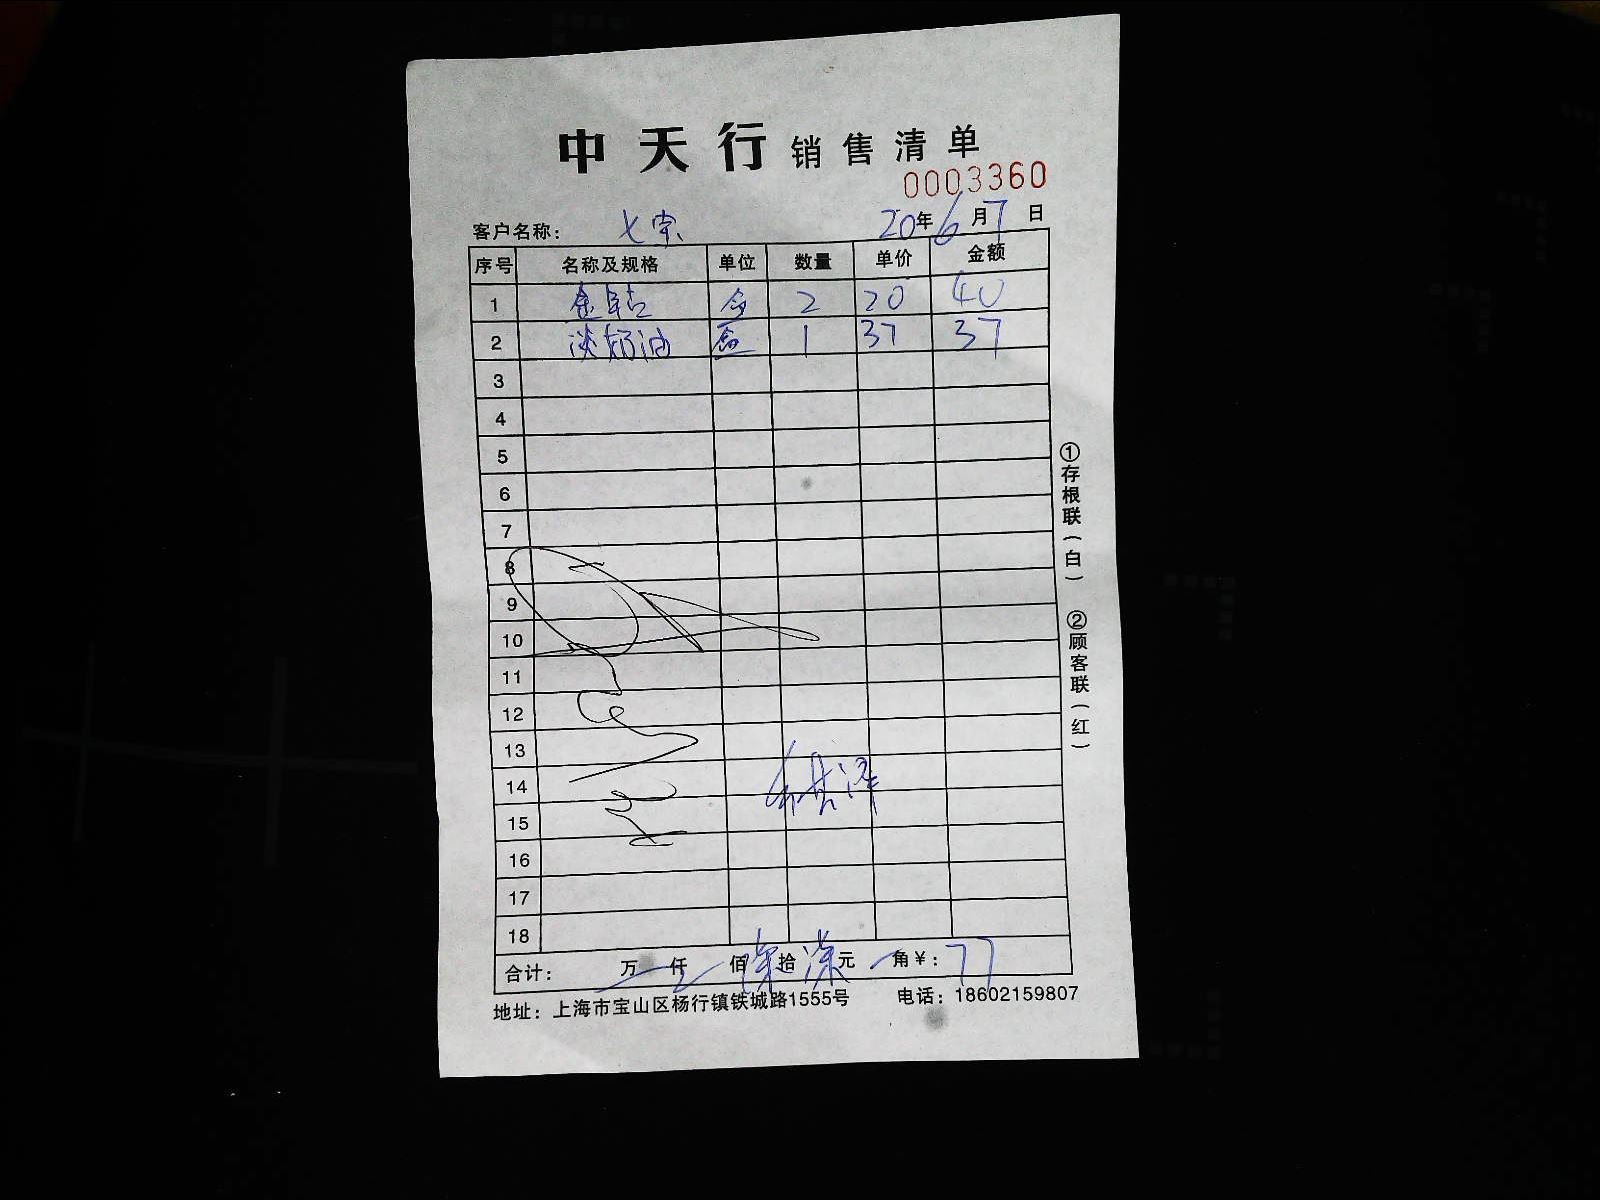 中天行销售清单
0003360
客户名称: 七宗 20年6月7日
序号 名称及规格 单位 数量 单价 金额
1 2 20 40
2 淡奶油 盒 1 37 37
3
4
5
6
7
8
9
10
11
12
13
14
15
16
17
18
合计: 万 仟 佰 柒拾 柒元 角¥: 77
地址: 上海市宝山区杨行镇铁城路1555号 电话: 18602159807
①存根联(白) ②顾客联(红)